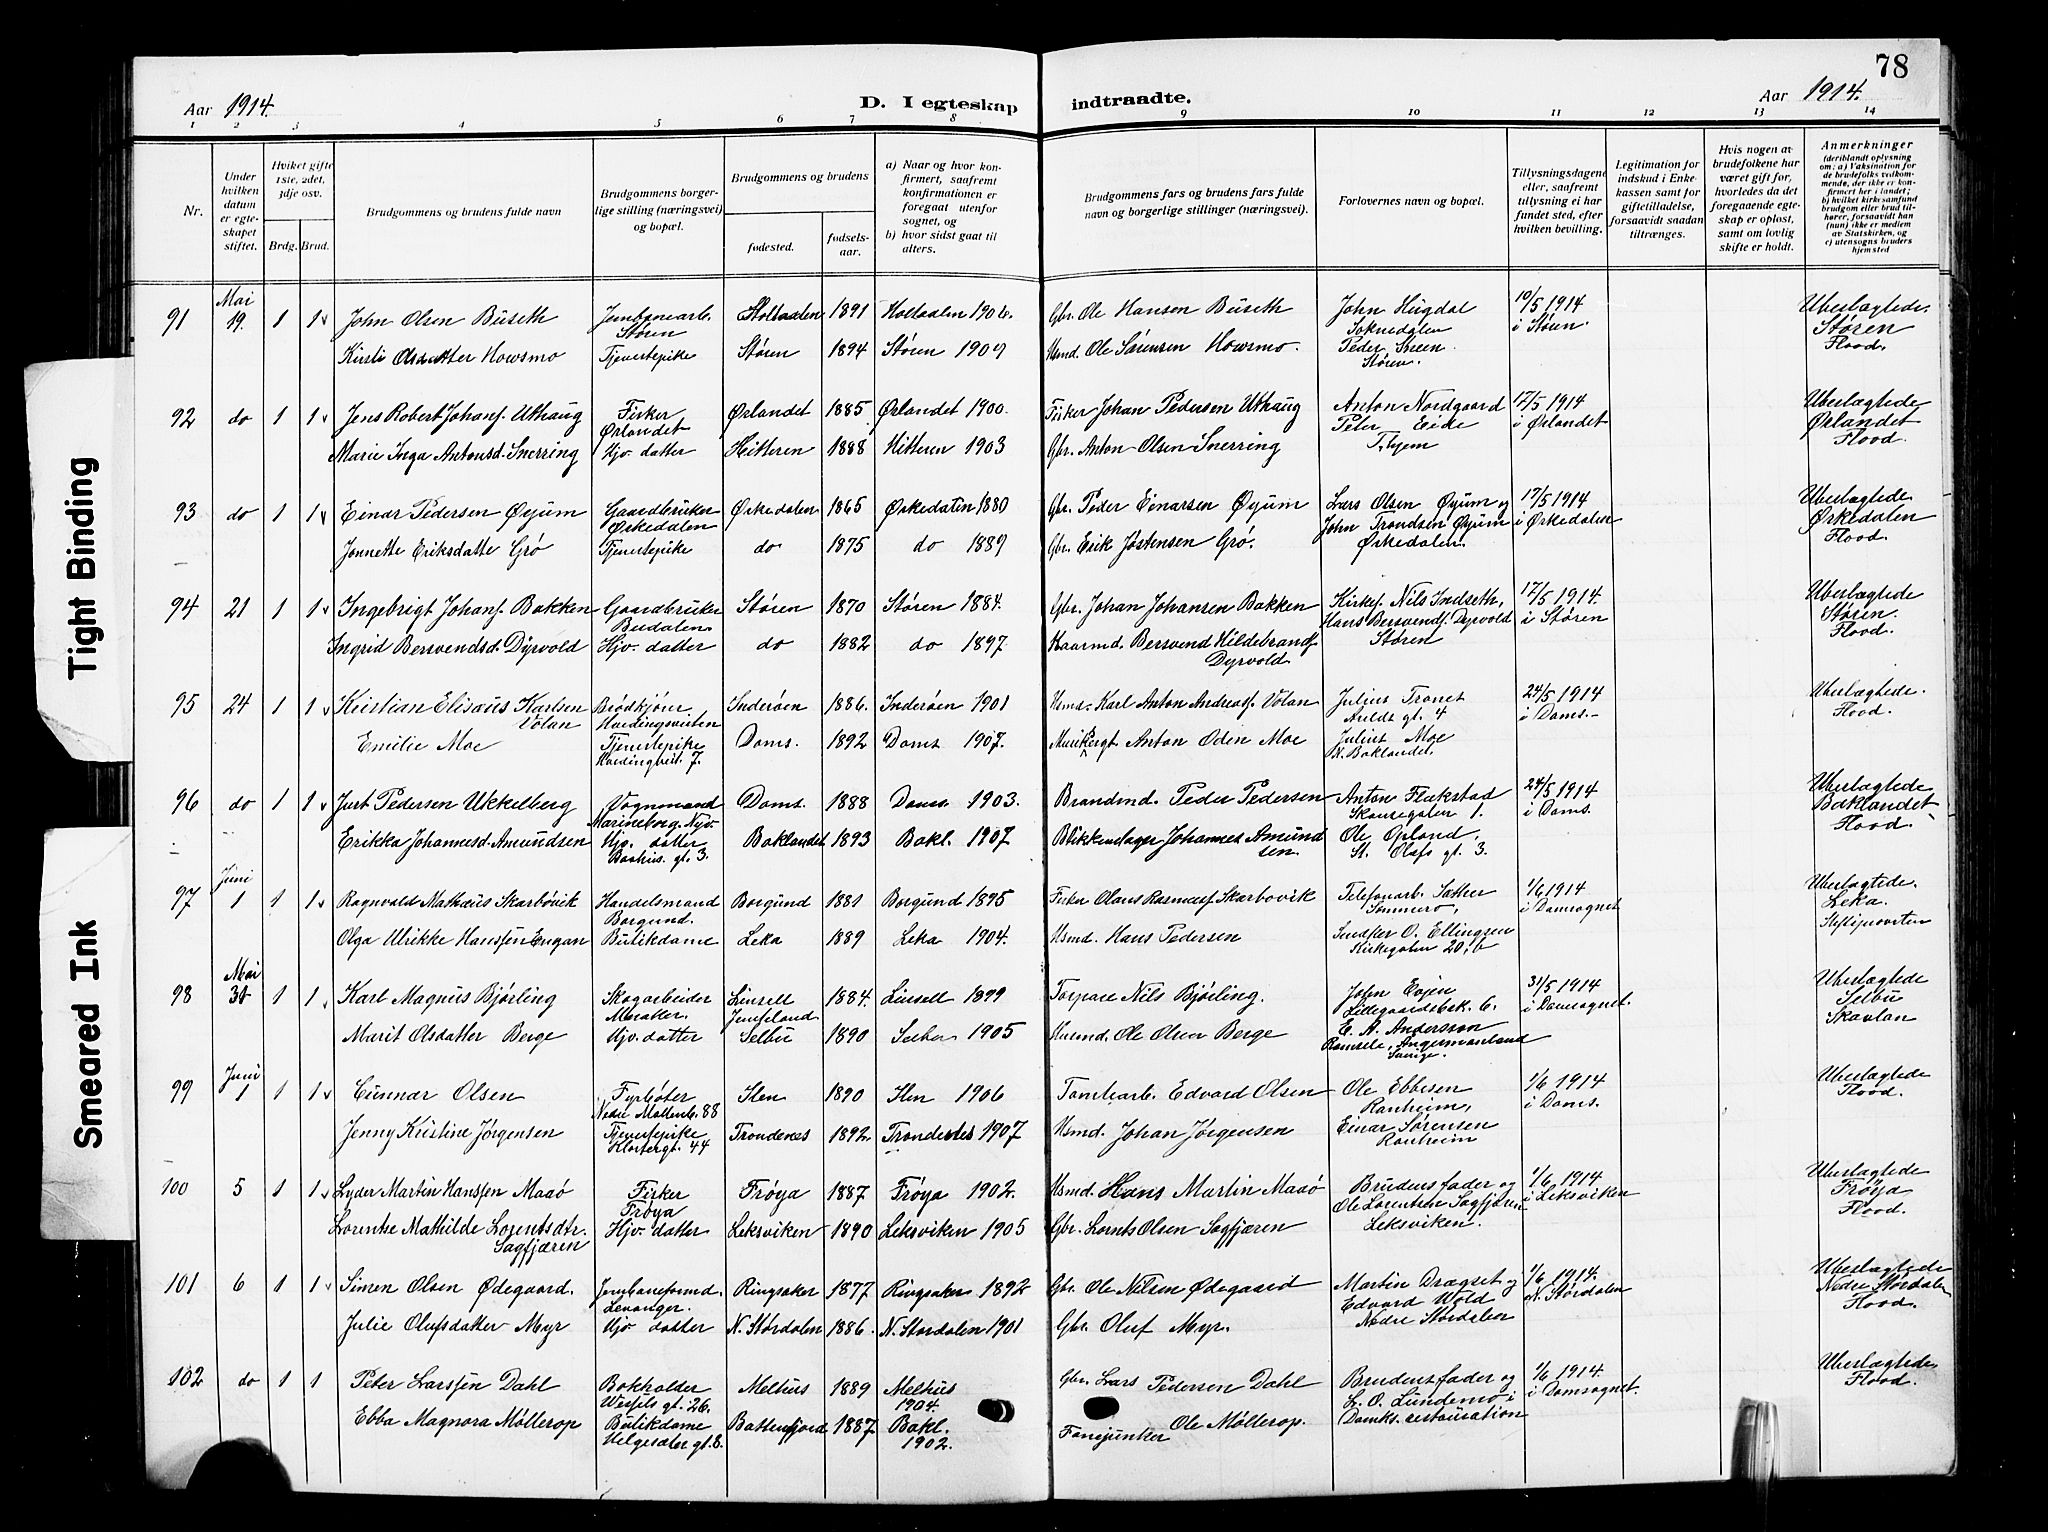 78
Aar 1914.
D. I egteskap indtraadte.
Aar 1914.
1 2 3 4 5 6 7 8 9 10 11 12 13 14
Nr.
Under hvilken datum er egteskapet stiftet.
Hvilket gifte 1ste, 2det, 3dje osv.
Brdg. Brud.
Brudgommens og brudens fulde navn
Brudgommens borgerlige stilling (næringsvei) og bopæl.
Brudgommens og brudens
fødested.
fødselsaar.
a) Naar og hvor konfirmert, saafremt konfirmationen er foregaat utenfor sognet, og
b) hvor sidst gaat til alters.
Brudgommens fars og brudens fars fulde navn og borgerlige stillinger (næringsvei).
Forlovernes navn og bopæl.
Tillysningsdagene eller, saafremt tillysning ei har fundet sted, efter hvilken bevilling.
Legitimation for indskud i Enkekassen samt for giftetilladelse, forsaavidt saadan tiltrænges.
Hvis nogen av brudefolkene har været gift før, hvorledes da det foregaaende egteskap er opløst, samt om lovlig skifte er holdt.
Anmerkninger (deriblandt oplysning om: a) Vaksination for de brudefolks vedkommende, der ikke er konfirmert her i landet; b) hvilket kirkesamfund brudgom eller brud tilhører, forsaavidt han (hun) ikke er medlem av Statskirken, og c) utensogns bruders hjemsted
91 Mai 19. 1 1 John Olsen Buseth Jernbanearb. Støren 1891 Holtaalen 1906. Gbr. Ole Hansen Buseth John Hugdal Soknedalen 10/5 1914 i Støren. Ubeslægtede. Støren Flood.
Kirsti Olsdatter Howsmo Tjenestepike Støren 1894 Støren 1909 Husmd. Ole Sørensen Howsmo. Peder Støren.
92 do 1 1 Jens Robert Johans. Uthaug Fisker Ørlandet Ørlandet 1885 Ørlandet 1900. Fisker Johan Pedersen Uthaug Anton Nordgaard Peter Eide T.hjem 17/5 1914 i Ørlandet Ubeslægtede Ørlandet Flood.
Marie Inga Antonsd. Snerring Hjv. datter Hitteren 1888 Hitteren 1903 Gbr. Anton Olsen Snerring
93 do 1 1 Einar Pedersen Øyum Gaardbruker Ørkedalen Ørkedalen 1865 Ørkedalen 1880 Gbr. Peder Einarsen Øyum Lars Olsen Øyum og John Trondsen Øyum Ørkedalen. 17/5 1914 i Ørkedalen Ubeslægtede Ørkedalen Flood.
Jonnette Eriksdatte Grø Tjenestepike do 1875 do 1889 Gbr. Erik Jøstensen Grø.
94 21 1 1 Ingebrigt Johans. Bakken Gaardbruker Budalen Støren 1870 Støren 1884. Gbr. Johan Johansen Bakken Kirkes. Nils Indseth, Hans Bersvends. Dyrvold Støren 17/5 1914. i Støren Ubeslægtede Støren. Flood.
Ingrid Bersvendsd. Dyrvold Hjv. datter do 1882 do 1897. Kaarmd. Bersvend Hildebrands. Dyrvold
95 24 1 1 Kristian Elisæus Karlsen Volan Brødkjører Inderøen 1886. Inderøen 1901 Husmd. Karl Anton Andreas. Volan Julius Tronet gt. 4 24/5 1914 i Doms. Ubeslægtede. Flood.
Emilie Moe Tjenestepike 7. Doms. 1892 Doms 1907. Anton Oden Moe Julius Moe N. Baklandet.
96 do 1 1 Jurt Pedersen Ukkelberg Vognmand Marineborg. Nyv. Doms. 1888 Doms 1903. Brandmd. Peder Pedersen Anton Flakstad Skansegaten 1. 24/5 1914 i Doms. Ubeslægtede Baklandet Flood.
Erikka Johannesd. Amundsen Hjv. datter gt. 3. Baklandet 1893 Bakl. 1907 Blikkenslager Johannes Amundsen. Ole Ørland, St. Olafs gt. 3.
97 Juni 1 1 1 Ragnvald Mathæus Skarbøvik Handelsmand Borgund. Borgund 1881 Borgund 1895 Fisker Olaus Rasmus. Skarbøvik Telefonarb. Sæther 1/6 1914 i Domsognet Ubeslægtede. Leka.
Olga Ulrikke Hanssen Engan Butikdame Leka 1889 Leka 1904. Husmd. Hans Pedersen O. Ellingsen Kirkegaten 20, b
98 Mai 31 1 1 Karl Magnus Bjørling Skogarbeider Linsell Jemtland 1884. Linsell 1899 Torpare Nils Bjørling. John Evjen Lillegaardsbk. 6. 31/5 1914 i Domsognet. Ubeslægtede Selbu Skavlan
Marit Olsdatter Berge Hjv. datter Selbu 1890 Selbu 1905 Husmd. Ole Olsen Berge E. A. Andersson Ramsele, Angermanland Sverige.
99 Juni 1 1 1 Gunnar Olsen Fyrbøter Nedre Møllenb. 88 Ilen 1890 Ilen 1906 Tomtearb. Edvard Olsen Ole Ebbesen Ranheim, 1/6 1914 i Doms. Ubeslægtede Flood.
Jenny Kristine Jørgensen Tjenestepike Klostergt. 44 Trondenes 1892. Trondenes 1907 Husmd. Johan Jørgensen Einar Sørensen Ranheim
100 5 1 1 Lyder Martin Hanssen Maaø Fisker Frøya Frøya 1887 Frøya 1902. Husmd. Hans Martin Maaø Brudens fader og Ole Lorentsen Sagfjæren Leksviken. 1/6 1914 i Leksviken Ubeslægtede Frøya Flood.
Lorentse Mathilde Lorentsdtr. Sagfjæren Hjv. datter Leksviken 1890 Leksviken 1905 Gbr. Lornts Olsen Sagfjæren
101 6 1 1 Simen Olsen Ødegaard. Jernbaneformd. Levanger. Ringsaker 1877 Ringsaker 1892 Gbr. Ole Nilsen Ødegaard Martin Drægset og Edvard Wold Nedre Størdalen 1/6 1914. N. Størdalen Ubeslægtede Nedre Størdalen Flood.
Julie Olufsdatter Myr Hjv datter N. Størdalen 1886. N. Størdalen 1901 Gbr. Oluf Myr.
102 do 1 1 Peter Larssen Dahl Bokholder Wessels gt. 26. Melhus 1889 Melhus 1904. Gbr. Lars Pedersen Dahl Brudens fader og L. O. Lundemo i Domks. restauration 1/6 1914. i Domsognet. Ubeslægtede. Flood.
Ebba Magnora Møllerop Butikdame Helgesæter gt. 8. Battenfjord 1887 Bakl. 1902. Fanejunker Ole Møllerop.
Tight Binding
Smeared Ink